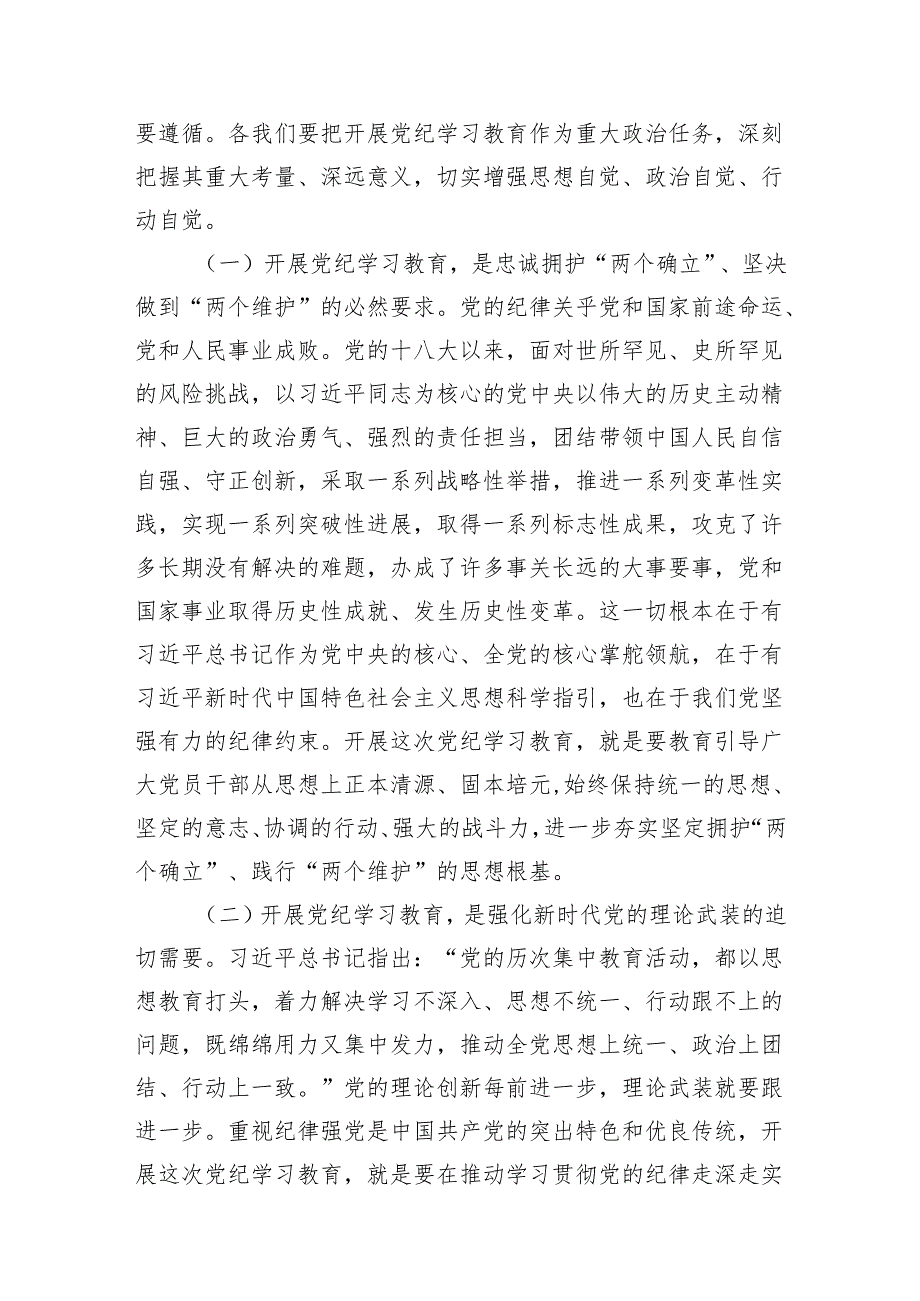 要遵循。各我们要把开展党纪学习教育作为重大政治任务，深刻
把握其重大考量、深远意义，切实增强思想自觉、政治自觉、行
动自觉。
（一）开展党纪学习教育，是忠诚拥护“两个确立”、坚决
做到“两个维护”的必然要求。党的纪律关乎党和国家前途命运、
党和人民事业成败。党的十八大以来，面对世所罕见、史所罕见
的风险挑战，以习近平同志为核心的党中央以伟大的历史主动精
神、巨大的政治勇气、强烈的责任担当，团结带领中国人民自信
自强、守正创新，采取一系列战略性举措，推进一系列变革性实
践，实现一系列突破性进展，取得一系列标志性成果，攻克了许
多长期没有解决的难题，办成了许多事关长远的大事要事，党和
国家事业取得历史性成就、发生历史性变革。这一切根本在于有
习近平总书记作为党中央的核心、全党的核心掌舵领航，在于有
习近平新时代中国特色社会主义思想科学指引，也在于我们党坚
强有力的纪律约束。开展这次党纪学习教育，就是要教育引导广
大党员干部从思想上正本清源、固本培元,始终保持统一的思想、
坚定的意志、协调的行动、强大的战斗力,进一步夯实坚定拥护“两
个确立”、践行“两个维护”的思想根基。
（二）开展党纪学习教育，是强化新时代党的理论武装的迫
切需要。习近平总书记指出：“党的历次集中教育活动，都以思
想教育打头，着力解决学习不深入、思想不统一、行动跟不上的
问题，既绵绵用力又集中发力，推动全党思想上统一、政治上团
结、行动上一致。”党的理论创新每前进一步，理论武装就要跟
进一步。重视纪律强党是中国共产党的突出特色和优良传统，开
展这次党纪学习教育，就是要在推动学习贯彻党的纪律走深走实